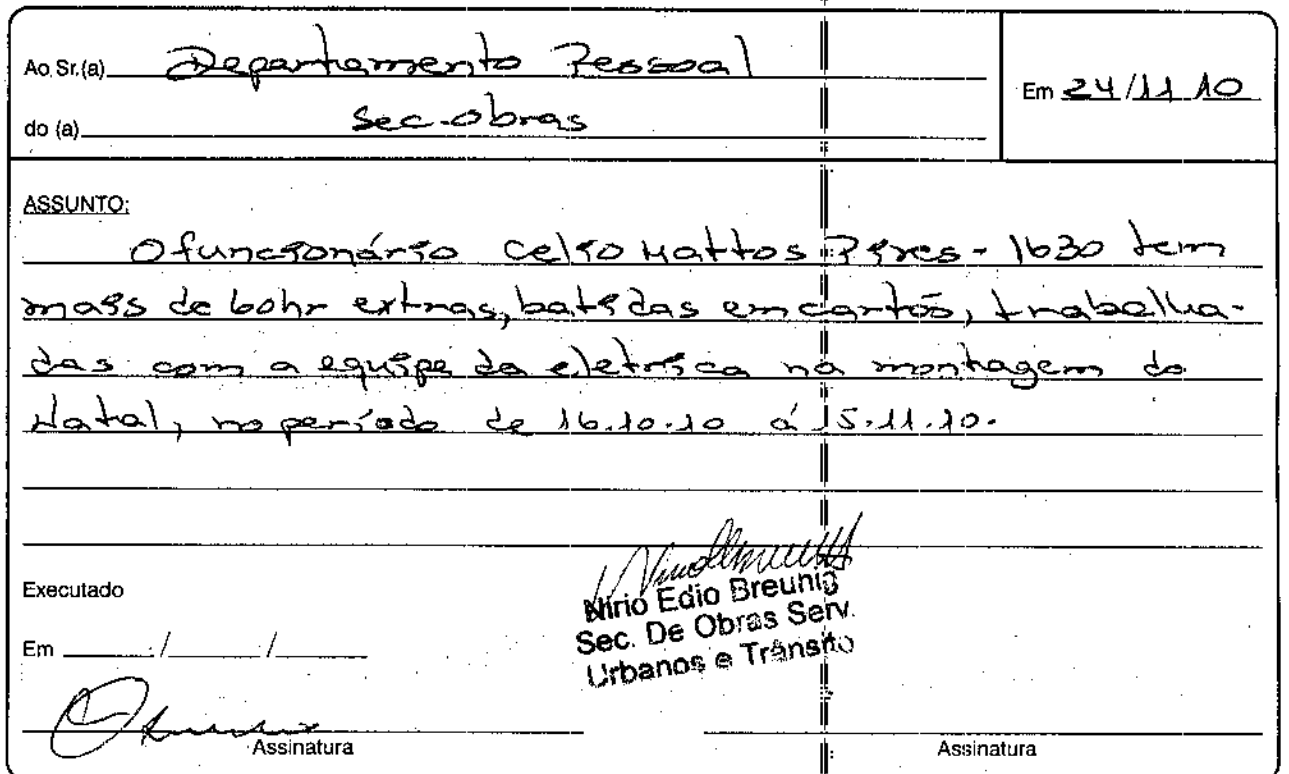 Ao Sr.(a) Departamento Pessoal
do (a) Sec. obras
Em 24/11 10
ASSUNTO:
O funcionário Celso Mattos Pires - 1630 tem
mais de 60hr extras, batidas em cartós, trabalha-
das com a equipe da eletrica na montagem do
Natal, no período de 16.10.10 á 15.11.10.
Executado
Em / /
Nirio Edio Breunig
Sec. De Obras Serv.
Urbanos e Trânsito
Assinatura
Assinatura